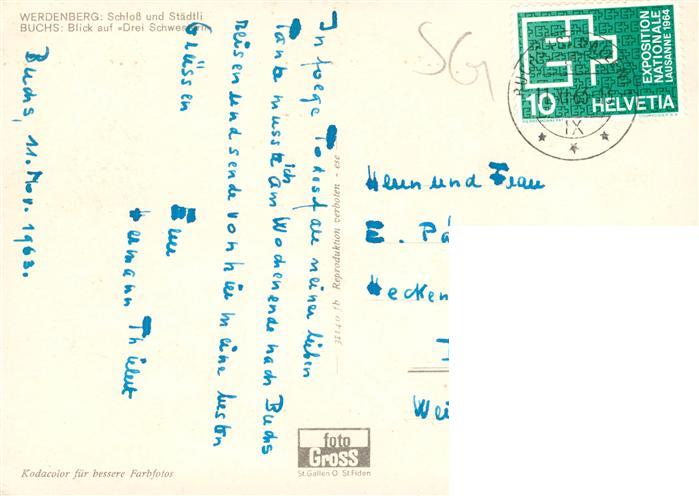 WERDENBERG: Schloß und Städtli
BUCHS: Blick auf «Drei Schwestern»
SG
EXPOSITION
NATIONALE
LAUSANNE 1964
10 HELVETIA
IX
Buchs, 11. Nov. 1963.
Infolge Todisfall meiner lieben
Tante musste ich am Wochenende nach Buchs
reisen und sende von hier meine besten
Grüssen
Euer
Hermann
Herrn und Frau
W. Pä
Hecken
Wei
31140 fb Reproduktion verboten - ese
foto
Gross
St. Gallen O St. Fiden
Kodacolor für bessere Farbfotos